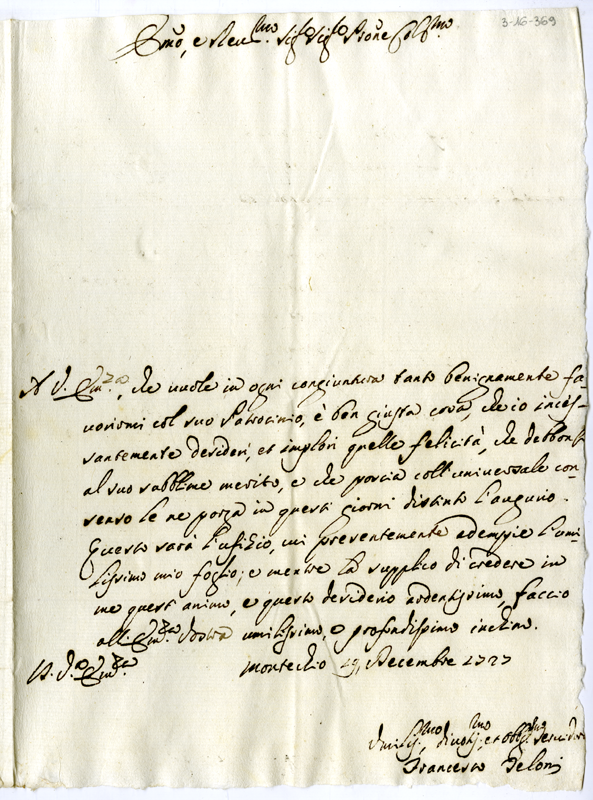 3-16-369
Emo, e Reu.mo Sig.re Sig.re Prone Col.mo
A V. Em.za, che uuole in ogni congiuntura tanto benignamente fa-
uorirmi col suo Patrocinio, è ben giusta cosa, che io inces-
santemente desideri, et implori quelle felicità, che debbonsi
al suo subblime merito, e che porcia coll'uniuersale con-
senso le ne porga in questi giorni distinto l'augurio.
Questo sarà l'ufizio, cui presentemente adempie l'umi-
lissimo mio foglio; e mentre la supplico di credere in
me questi animo, e questo desiderio ardentissimo, faccio
all'Em.za Vostra umilissimo, e profondissimo inchino.
Di V.a Em.za Montechio 19 Decembre 1727
Umiliss.mo, diuotiss.mo, et obblig.mo Seruidore
Francesco Peloni